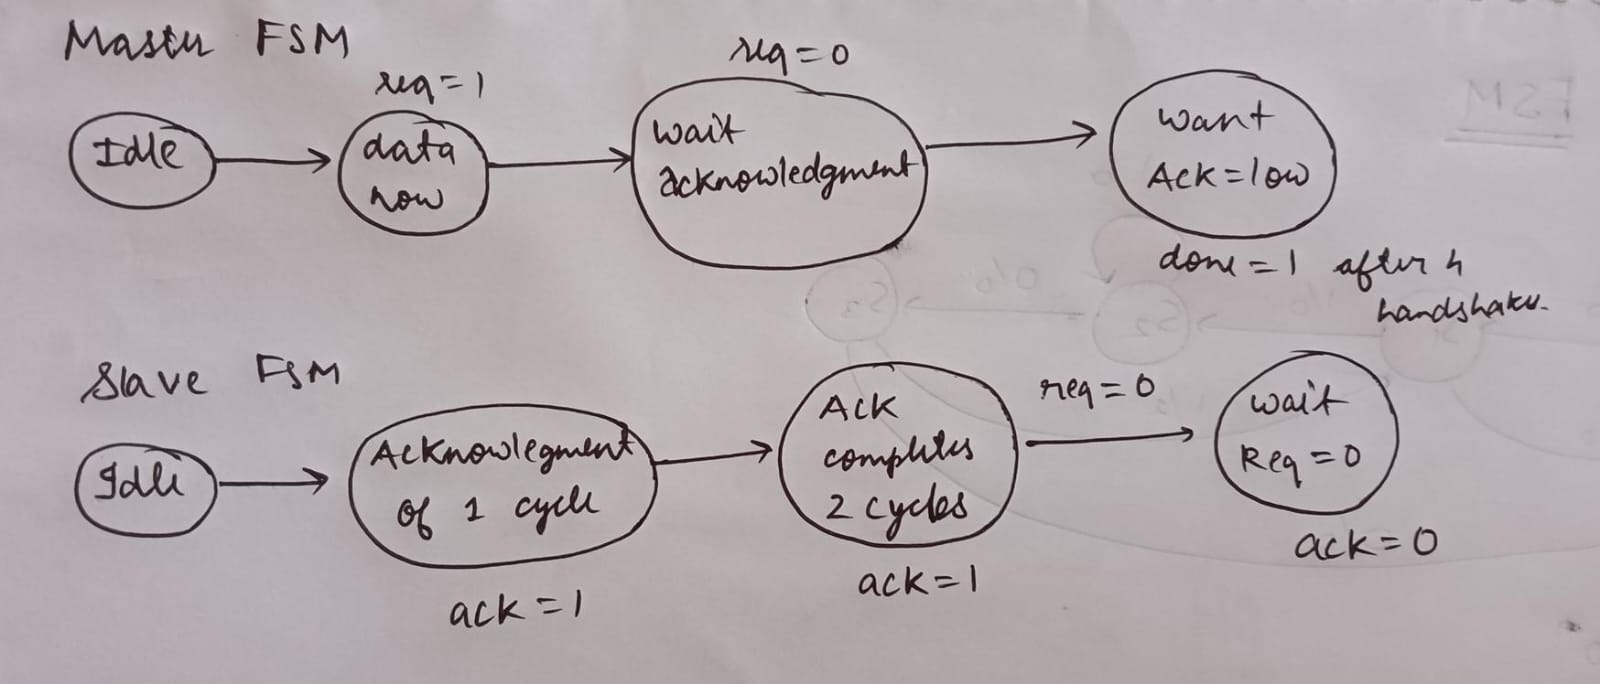 Master FSM
req = 1
req = 0
Idle
data
now
wait
acknowledgment
want
Ack = low
done = 1 after 4
handshakes.
Slave FSM
Idle
Acknowlegment
of 1 cycle
ack = 1
Ack
completes
2 cycles
ack = 1
req = 0
wait
Req = 0
ack = 0
FSM
S3
S2